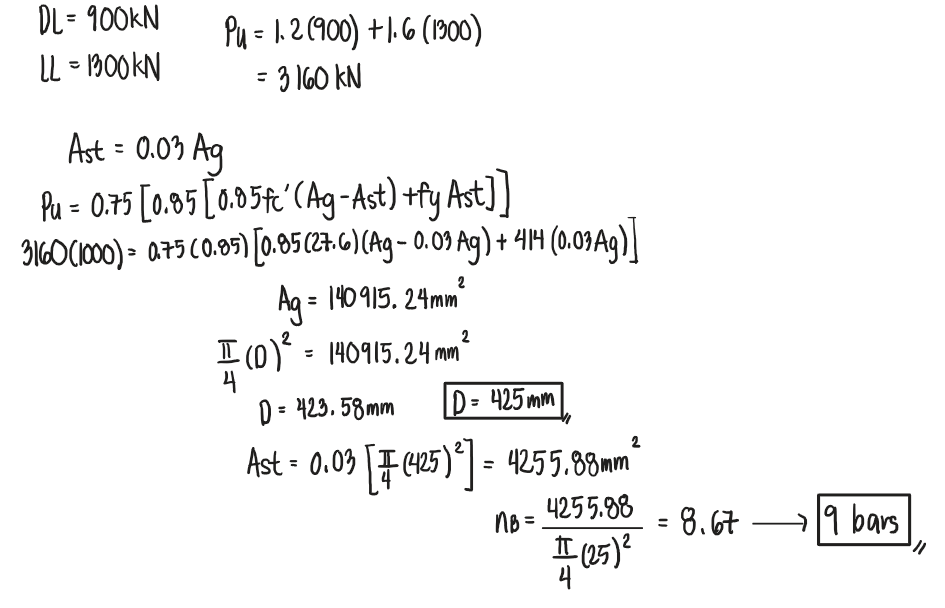 DL = 900kN
LL = 1300kN
Pu = 1.2(900) + 1.6(1300)
= 3160 kN
Ast = 0.03 Ag
Pu = 0.75 [0.85 [0.85fc'(Ag - Ast) + fy Ast]]
3160(1000) = 0.75(0.85) [0.85(27.6)(Ag - 0.03 Ag) + 414 (0.03Ag)]
Ag = 140915.24mm²
π/4 (D)² = 140915.24 mm²
D = 423.58mm
D = 425mm
Ast = 0.03 [π/4 (425)²] = 4255.88mm²
nB = 4255.88 / π/4 (25)² = 8.67 → 9 bars